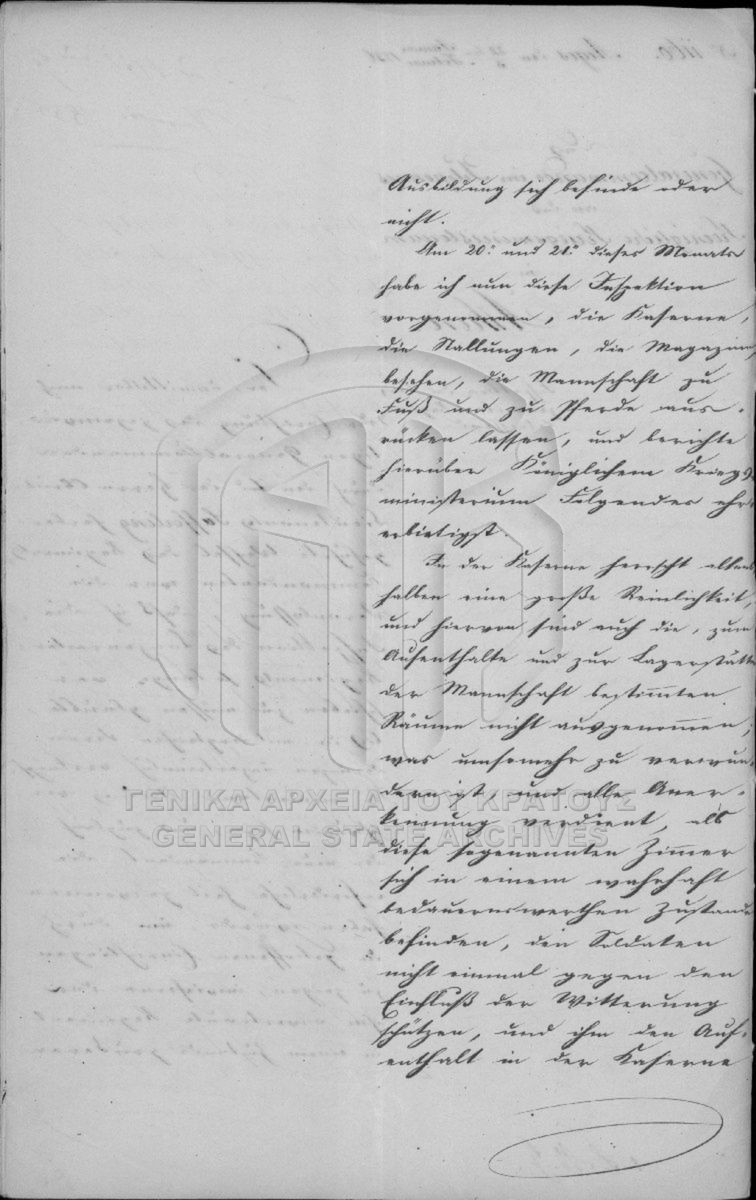 Ausbildung sich befinde oder
nicht.
Am 20.ⁿ und 21.ⁿ dieses Monats
habe ich nun diese Inspektion
vorgenommen, die Kaserne,
die Stallungen, die Magazine,
besehen, die Mannschaft zu
Fuß und zu Pferde aus-
rücken lassen, und berichte
hierüber Königlichem Kriegs-
ministerium Folgendes ehr-
erbietigst.
In der Kaserne herrscht allent-
halben eine große Reinlichkeit,
und hiervon sind auch die, zum
Aufenthalte und zur Lagerstätte
der Mannschaft bestimmten
Räume nicht ausgenommen,
was umsomehr zu verwun-
dern ist und alle Aner-
kennung verdient, als
diese sogenannten Zimmer
sich in einem wahrhaft
bedauernswerthen Zustande
befinden, den Soldaten
nicht einmal gegen den
Einfluß der Witterung
schützen, und ihm den Auf-
enthalt in der Kaserne
ΓΕΝΙΚΑ ΑΡΧΕΙΑ ΤΟΥ ΚΡΑΤΟΥΣ
GENERAL STATE ARCHIVES